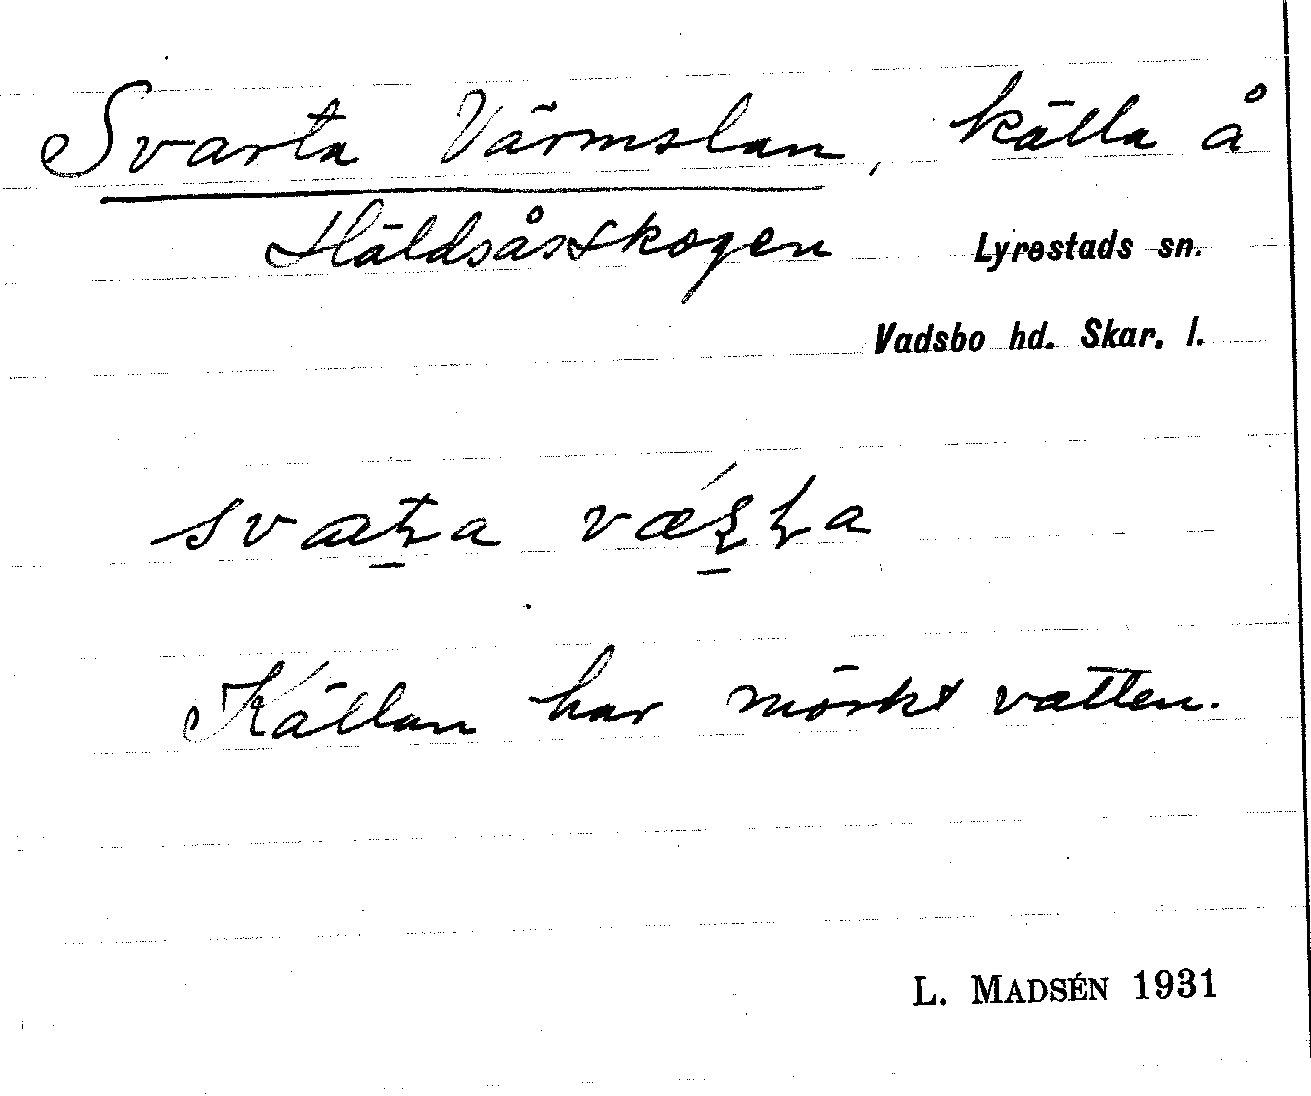 Svarta Värmslan, källa å
Häldsåsskogen Lyrestads sn.
Vadsbo hd. Skar. l.
Källan har mörkt vatten.
L. MADSÉN 1931